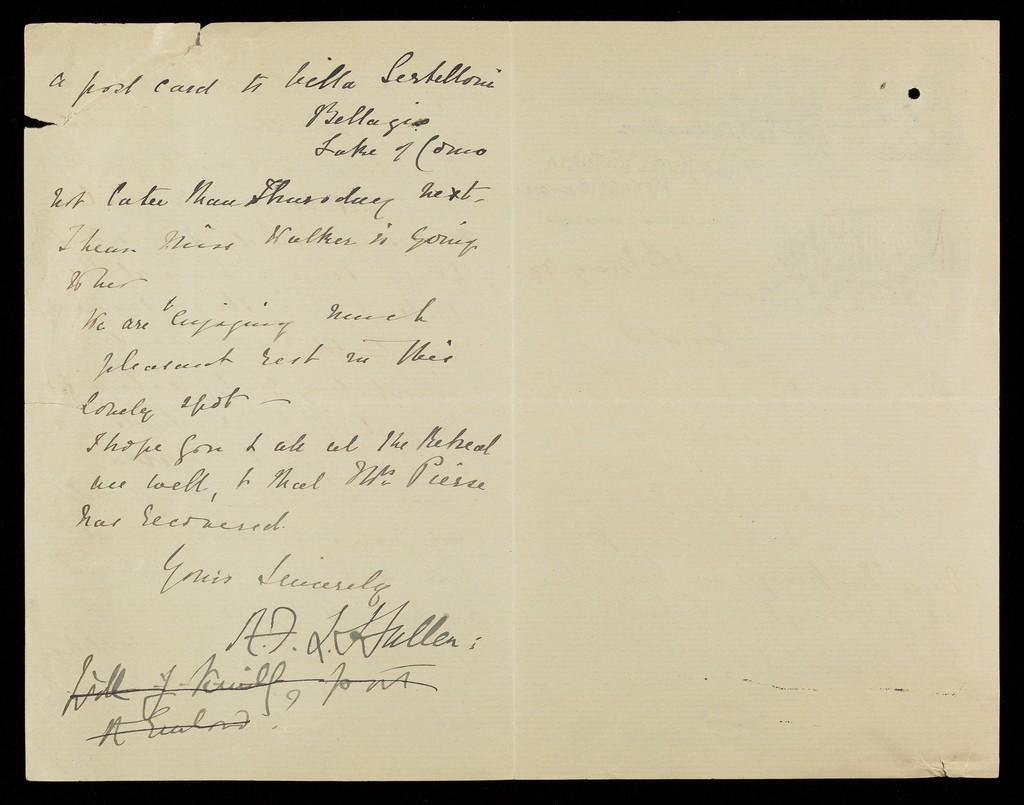 a post card to Villa Serbelloni
Bellagio
Lake of Como
not later than Thursday next -
I hear Miss Walker is going
to her
We are enjoying much
pleasant rest in this
lovely spot —
I hope you & all at the Retreat
are well, & that Mrs Pierse
has recovered.
Yours Sincerely
A. F.
of